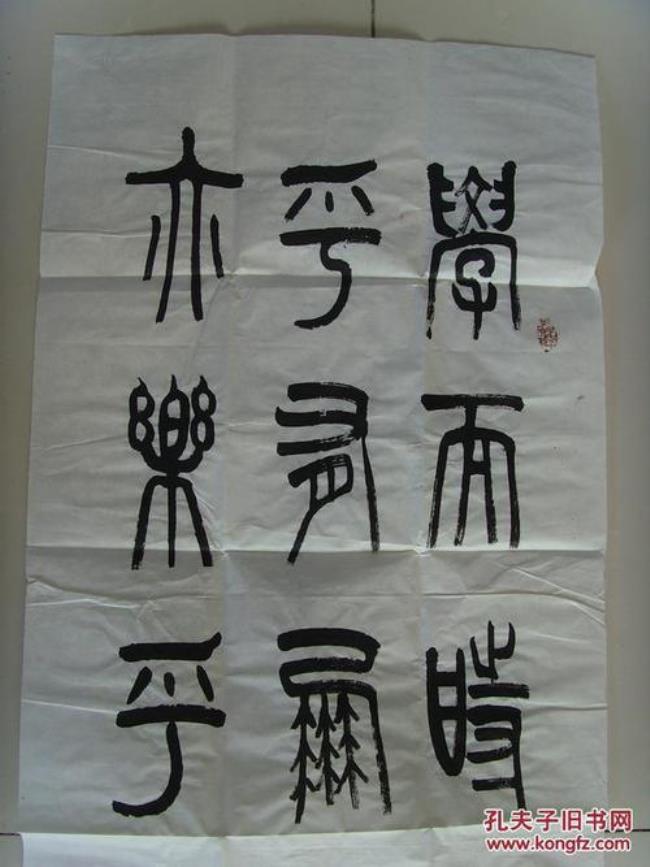 學而時
乎有朋
亦樂乎
孔夫子旧书网
www.kongfz.com